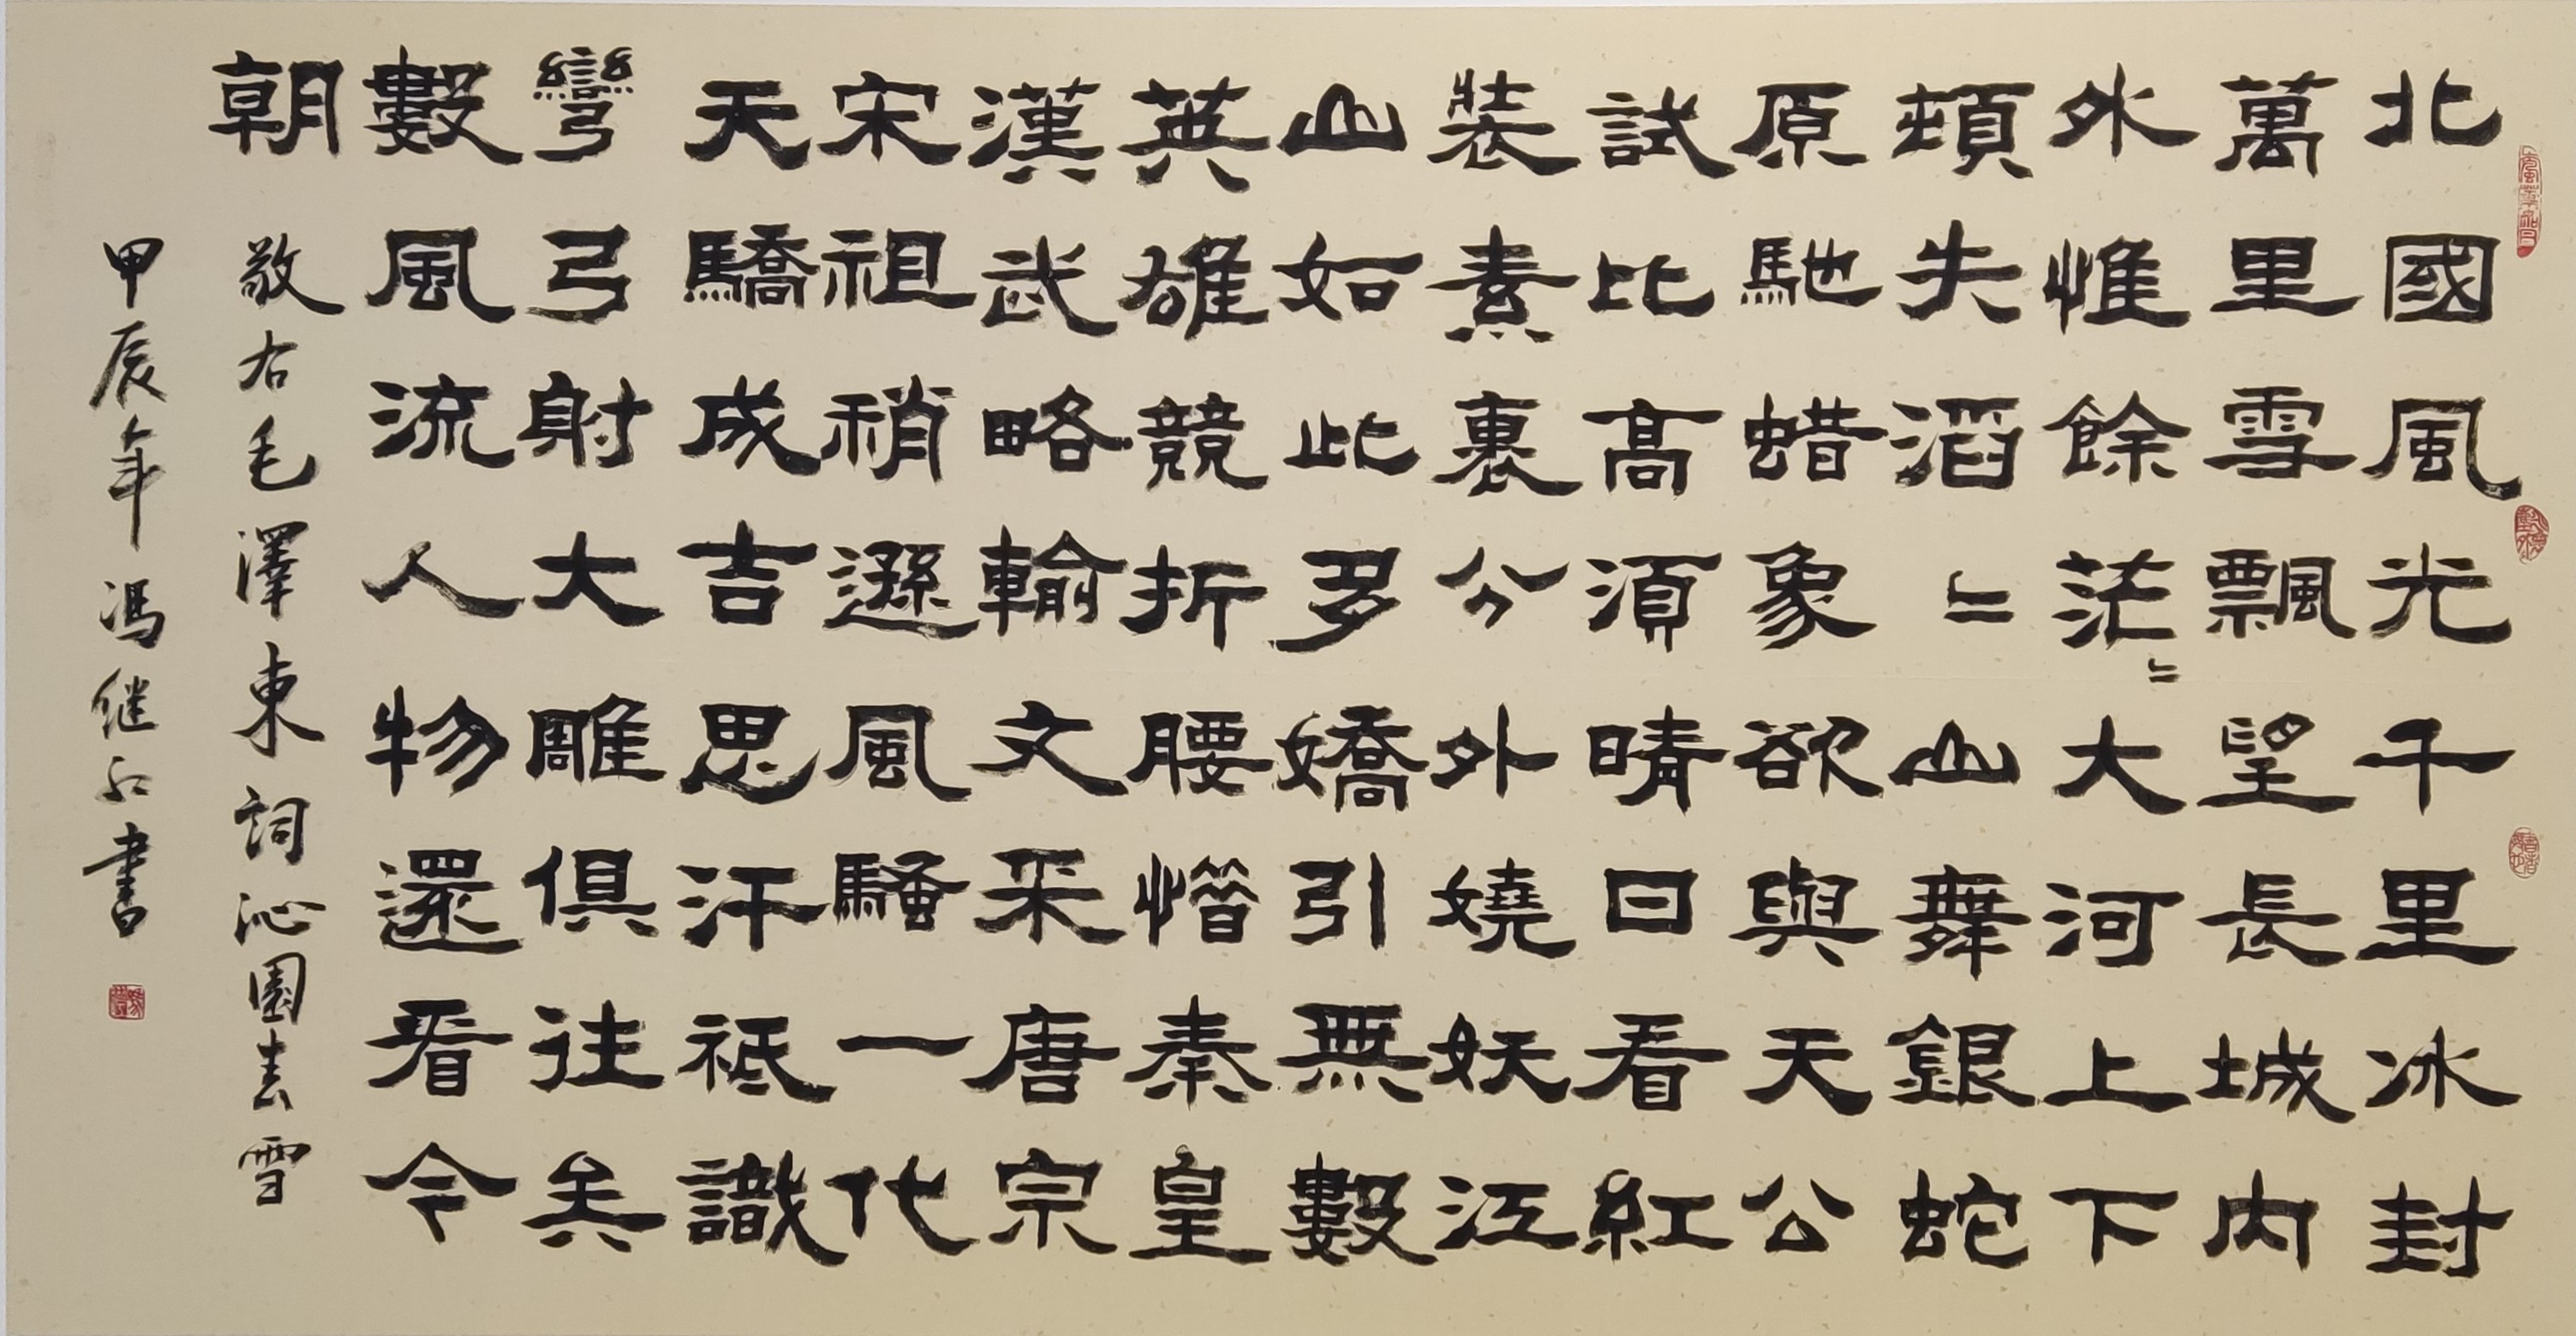 北國風光千里冰封
萬里雪飄望長城內
外惟餘茫〻大河上下
頓失滔〻山舞銀蛇
原馳蜡象欲與天公
試比高須晴日看紅
裝素裹分外嬈妖江
山如此多嬌引無數
英雄競折腰惜秦皇
漢武略輸文采唐宗
宋祖稍遜風騷一代
天驕成吉思汗祇識
彎弓射大雕俱往矣
數風流人物還看今
朝 敬右毛澤東詞沁園春雪
甲辰年 冯继红書